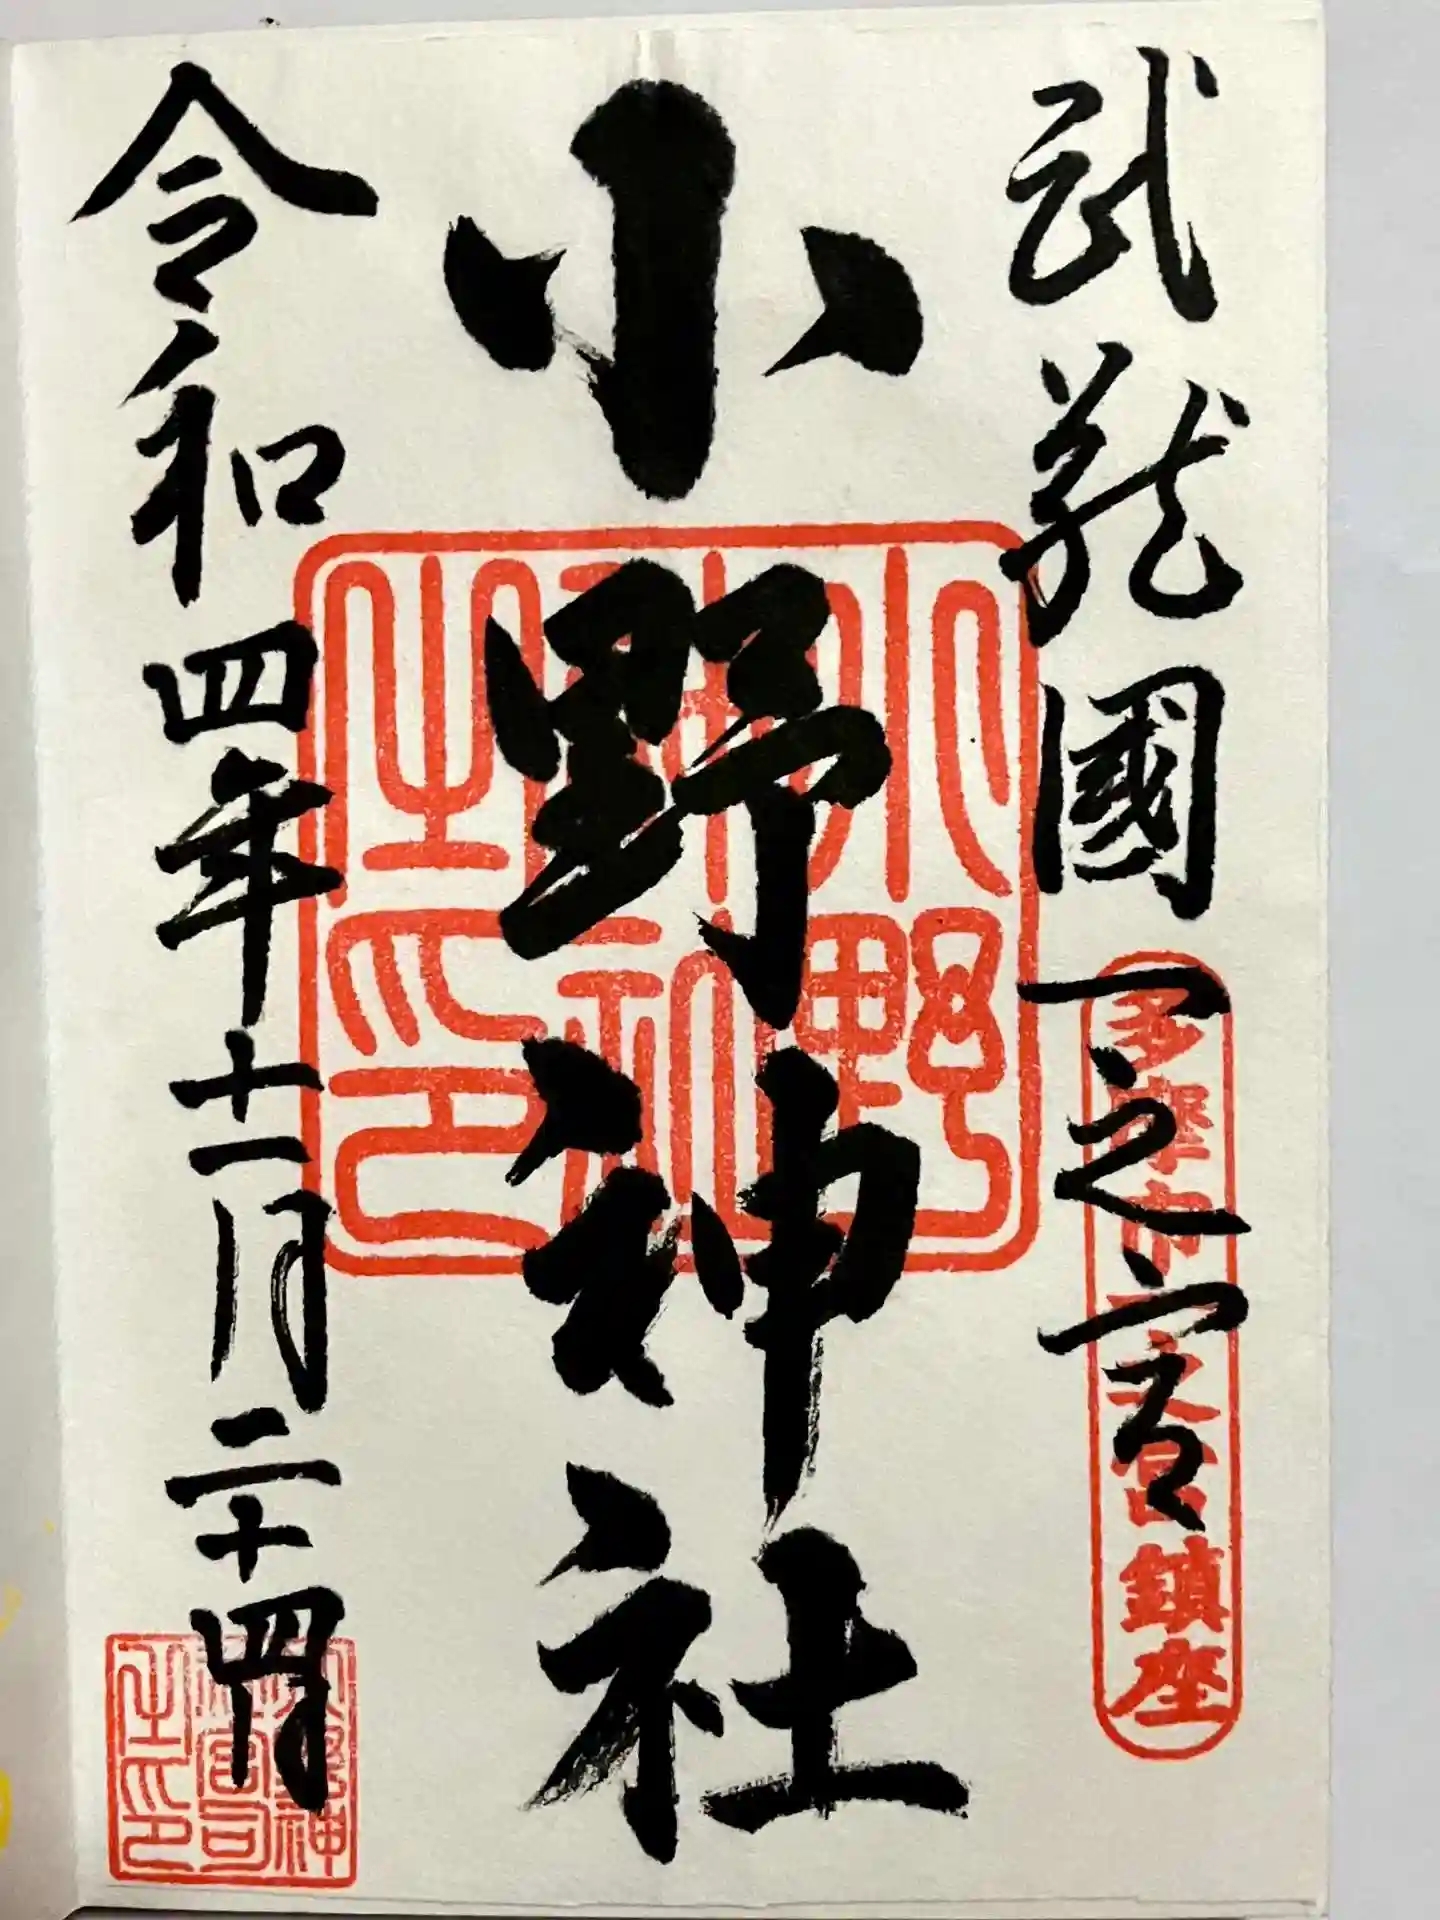 武蔵國一之宮
多摩市一之宮鎮座
小野神社
小野神社之印
令和四年十一月二十四日